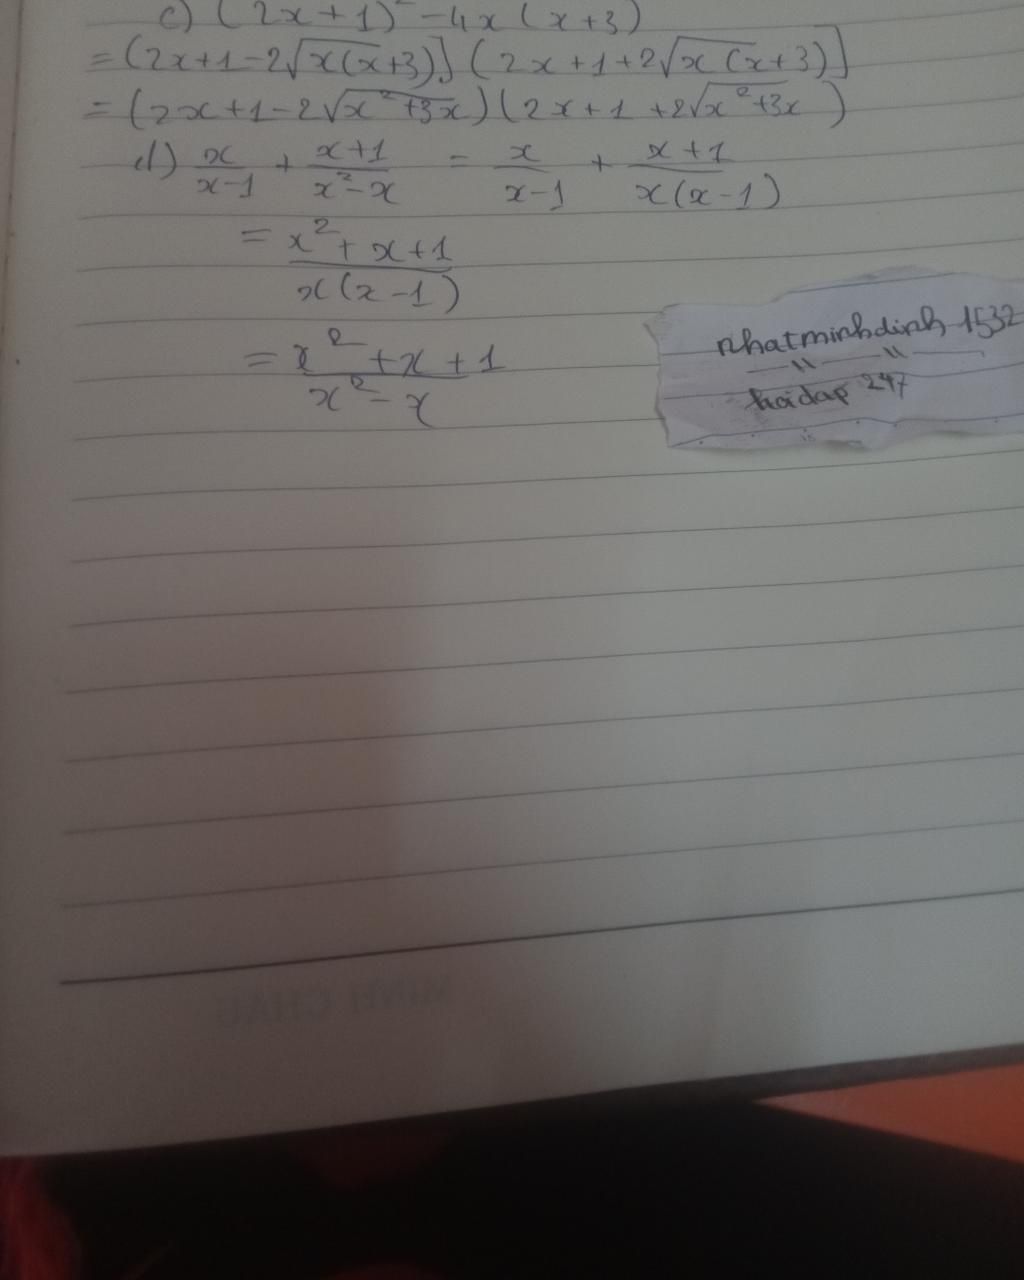 c) (2x+1)² - 4x(x+3)
= (2x+1-2√x(x+3)] (2x+1+2√x(x+3)]
= (2x+1-2√x²+3x) (2x+1+2√x²+3x)
d) x/x-1 + x+1/x²-x = x/x-1 + x+1/x(x-1)
= x²+x+1/x(x-1)
= x²+x+1/x²-x
nhatminhdinh 1532
hoidap 247
MINH CHAU